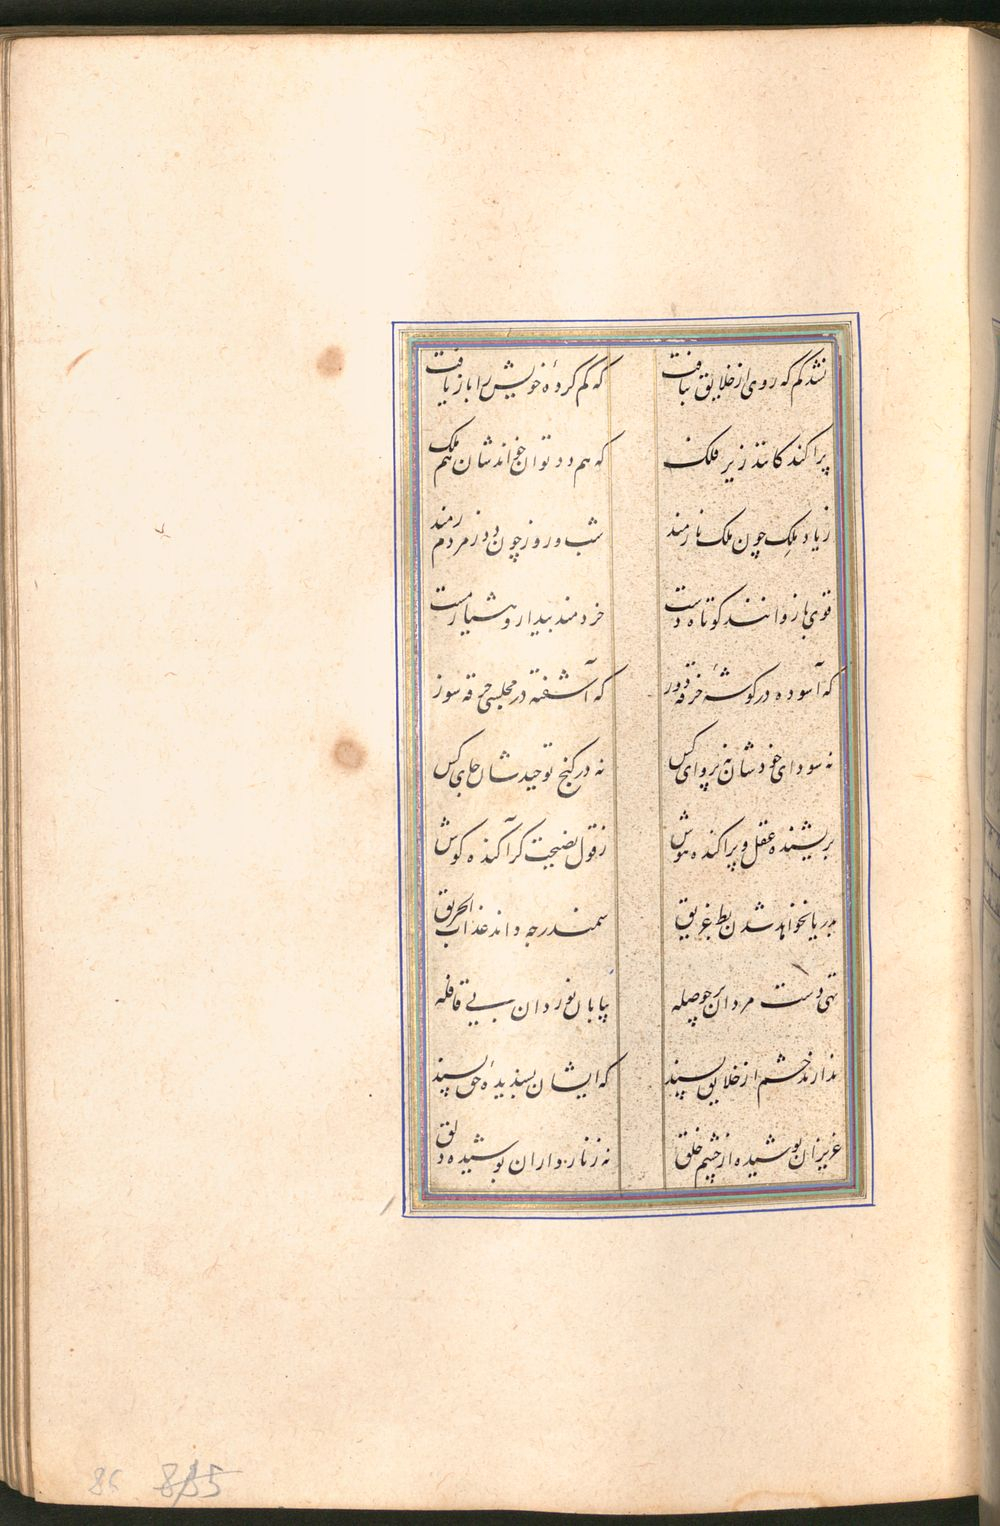 نشد کم که روی از خلایق بتافت که کم کردهٔ خویش را باز یافت
پراکندکانند زیر فلک که هم دد توان خواندشان هم ملک
زیاد ملک چون ملک نارمند شب و روز چون دد ز مردم رمند
قوی بازوانند کوتاه دست خردمند بیدار و هشیار مست
که آسوده در کوشهٔ خرقه دوز که آشفته در مجلسی خرقه سوز
نه سودای خودشان نه پروای کس نه در کنج توحیدشان جای کس
پریشیده عقل و پراکنده هوش ز قول نصیحت کر آکنده کوش
بدریا نخواهد شدن بط غریق سمندر چه داند عذاب الحریق
تهی دست مردان پر حوصله بیابان نوردان بی قافله
ندارند خشم از خلایق پسند که ایشان پسندیدهٔ حق پسند
عزیزان پوشیده از چشم خلق نه زنار داران پوشیده دلق
86 885